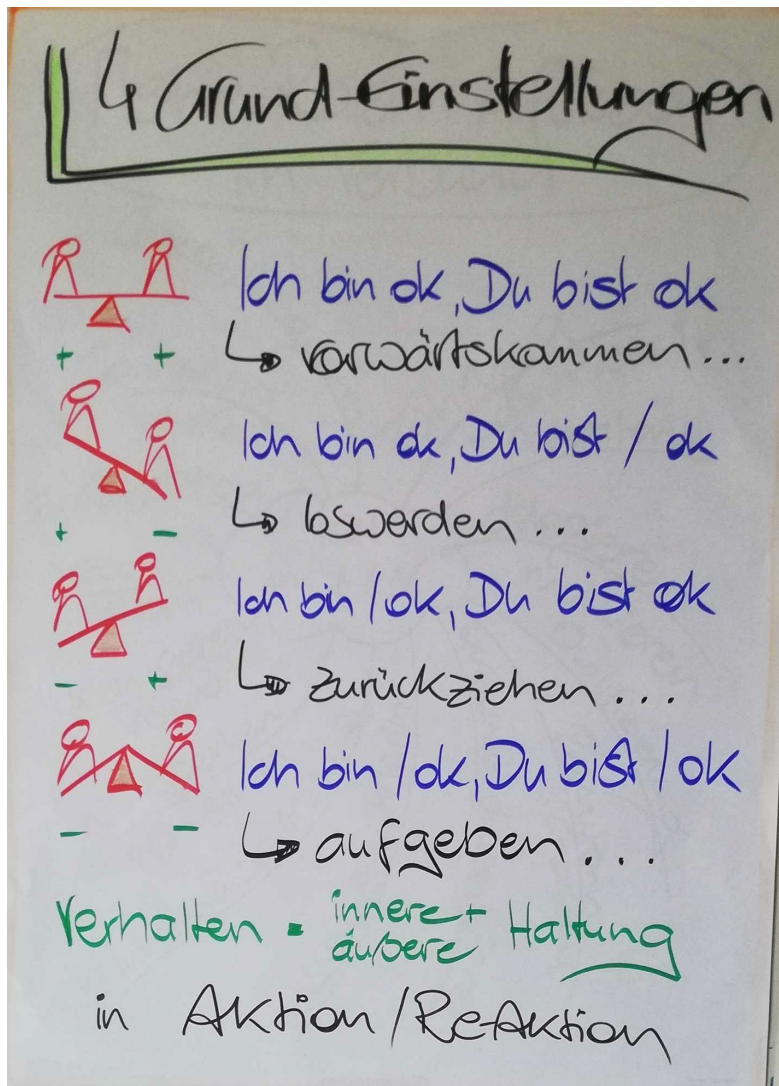 4 Grund-Einstellungen
Ich bin ok, Du bist ok
+ + ↳ vorwärtskommen...
Ich bin ok, Du bist / ok
+ - ↳ loswerden...
Ich bin /ok, Du bist ok
- + ↳ zurückziehen...
Ich bin /ok, Du bist /ok
- - ↳ aufgeben...
Verhalten = innere + äußere Haltung
in Aktion/Re-Aktion